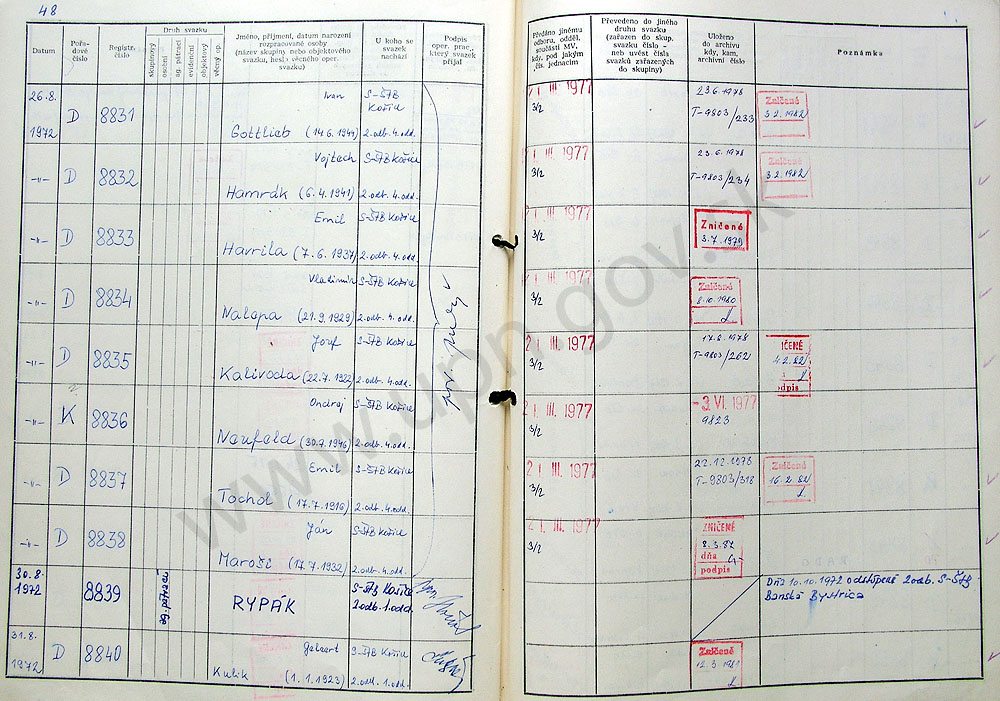 48
Datum
Pořadové číslo
Registr. číslo
Druh svazku
skupinový
osobní
ag. pátrací
evidenční
objektový
věcný op.
Jméno, příjmení, datum narození rozpracované osoby
(název skupiny nebo objektového svazku, heslo věcného oper. svazku)
U koho se svazek nachází
Podpis oper. prac., který svazek přijal
Předáno jinému odboru, odděl. součásti MV, kdy, pod jakým čís. jednacím
Převedeno do jiného druhu svazku (zařazen do skup. svazku číslo - neb uvést čísla svazků zařazených do skupiny)
Uloženo do archivu kdy, kam, archivní číslo
Poznámka
26.8. 1972 D 8831 Ivan Gottlieb (14.6.1949) S-ŠTB Košice 2.odb.4.odd.
21 III. 1977 3/2 23.6.1978 T-9803/233 Zničené 3.2.1982
-„- D 8832 Vojtech Hamrák (6.4.1941) S-ŠTB Košice 2.odb.4.odd.
21 III. 1977 3/2 23.6.1978 T-9803/234 Zničené 3.2.1982
-„- D 8833 Emil Havrila (7.6.1937) S-ŠTB Košice 2.odb.4.odd.
21 III. 1977 3/2 Zničené 3.7.1979
-„- D 8834 Vladimír Nalepa (21.9.1929) S-ŠTB Košice 2.odb.4.odd.
21 III. 1977 3/2 Zničené 8.10.1980
-„- D 8835 Jozef Kalivoda (22.7.1922) S-ŠTB Košice 2.odb.4.odd.
21 III. 1977 3/2 T-9803/262 ZNIČENÉ 4.2.82 podpis
-„- K 8836 Ondrej Neufeld (30.7.1946) S-ŠTB Košice 2.odb.4.odd.
21 III. 1977 3/2 -3. VI. 1977 9823
-„- D 8837 Emil Tochol (17.7.1916) S-ŠTB Košice 2.odb.4.odd.
21 III. 1977 3/2 22.12.1978 T-9803/318 Zničené 16.2.82
-„- D 8838 Ján Maroši (17.7.1932) S-ŠTB Košice 2.odb.4.odd.
21 III. 1977 3/2 ZNIČENÉ 8.3.82 dňa podpis
30.8. 1972 8839 RYPÁK S-ŠTB Košice 2odb.1.odd.
Dňa 10.10.1972 odstúpené 2odb. S-ŠTB
Banská Bystrica
31.8. 1972 D 8840 Kulik (1.1.1923) S-ŠTB Košice 2.odb.1.odd.
Zničené 12.3.1981
www.upn.gov.sk